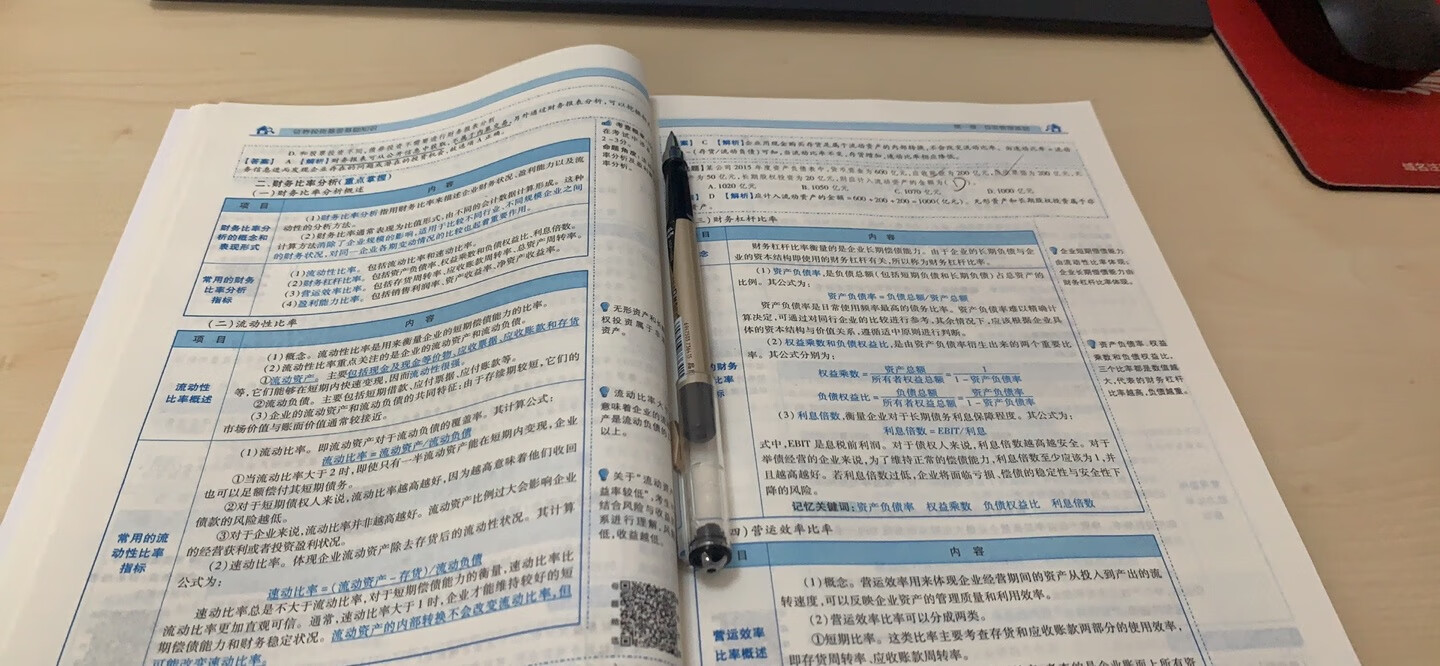 证券投资基金基础知识
D. 和股票投资不同,债券投资不需要进行财务报表分析
【答案】 A 【解析】财务报表可以从公开信息中获取,不属于内幕交易,另外通过财务报表分析,可以挖掘
务信息进而发现企业存在的问题或潜在的投资机会,故选项A正确。
二、财务比率分析(重点掌握)
(一)财务比率分析概述
项 目 内 容
财务比率分
析的概念和
表现形式
(1)财务比率分析指用财务比率来描述企业财务状况、盈利能力以及流
动性的分析方法。
(2)财务比率通常表现为比值形式,由不同的会计数据计算形成。这种
计算方法消除了企业规模的影响,适用于比较不同行业、不同规模企业之间
的财务状况,对同一企业各期变动情况的比较也起着重要作用。
常用的财务
比率分析
指标
(1)流动性比率。包括流动比率和速动比率。
(2)财务杠杆比率。包括资产负债率、权益乘数和负债权益比、利息倍数。
(3)营运效率比率。包括存货周转率、应收账款周转率、总资产周转率。
(4)盈利能力比率。包括销售利润率、资产收益率、净资产收益率。
(二)流动性比率
项 目 内 容
流动性
比率概述
(1)概念。流动性比率是用来衡量企业的短期偿债能力的比率。
(2)流动性比率重点关注的是企业的流动资产和流动负债。
①流动资产。主要包括现金及现金等价物、应收票据、应收账款和存货
等,它们能够在短期内快速变现,因而流动性很强。
②流动负债。主要包括短期借款、应付票据、应付账款等。
(3)企业的流动资产和流动负债的共同特征:由于存续期较短,它们的
市场价值与账面价值通常较接近。
常用的流
动性比率
指标
(1)流动比率。即流动资产对于流动负债的覆盖率。其计算公式:
流动比率=流动资产/流动负债
①当流动比率大于2时,即使只有一半流动资产能在短期内变现,企业
也可以足额偿付其短期债务。
②对于短期债权人来说,流动比率越高越好,因为越高意味着他们收回
债款的风险越低。
③对于企业来说,流动比率并非越高越好。流动资产比例过大会影响企业
的经营获利或者投资盈利状况。
(2)速动比率。体现企业流动资产除去存货后的流动性状况。其计算
公式为:
速动比率=(流动资产-存货)/流动负债
速动比率总是不大于流动比率,对于短期偿债能力的衡量,速动比率比
流动比率更加直观可信。通常,速动比率大于1时,企业才能维持较好的短
期偿债能力和财务稳定状况。流动资产的内部转换不会改变流动比率,但
可能改变速动比率。
考查概率
在考试中
2~3分。
命题角度
率分析
率分析。
无形资产和
权投资属于
资产。
流动比率大
意味着企业的流
产是流动负债的
以上。
关于“流动资
益率较低”,考生
结合风险与收益
系进行理解,风
低,收益越低。
】 C 【解析】企业用现金购买存货是属于流动资产的内部转换,不会改变流动比率。而速动比率=流动
-(存货/流动负债)可知,当流动比率不变,存货增加,速动比率相应降低。
题】某公司2015年度资产负债表中,货币资金为600亿元,应收账款为200亿元,应收票据为200亿元,
为50亿元,长期股权投资为20亿元,则应计入流动资产的金额为( D )。
A. 1020亿元 B. 1050亿元 C. 1070亿元 D. 1000亿元
】 D 【解析】应计入流动资产的金额=600+200+200=1000(亿元)。无形资产和长期股权投资属于非
资产。
三)财务杠杆比率
内 容
念
财务杠杆比率衡量的是企业长期偿债能力。由于企业的长期负债与企
业的资本结构即使用的财务杠杆有关,所以称为财务杠杆比率。
的财务
比率
标
(1)资产负债率,是负债总额(包括短期负债和长期负债)占总资产的
比例。其公式为:
资产负债率=负债总额/资产总额
资产负债率是日常使用频率最高的债务比率。资产负债率难以精确计
算决定,可通过对同行企业的比较进行参考,其余情况下,应该根据企业具
体的资本结构与价值关系,遵循适中原则进行判断。
(2)权益乘数和负债权益比,是由资产负债率衍生出来的两个重要比
率。其公式分别为:
权益乘数=资产总额/所有者权益总额=1/(1-资产负债率)
负债权益比=负债总额/所有者权益总额=资产负债率/(1-资产负债率)
(3)利息倍数,衡量企业对于长期债务利息保障程度。其公式为:
利息倍数=EBIT/利息
式中,EBIT是息税前利润。对于债权人来说,利息倍数越高越安全。对于
举债经营的企业来说,为了维持正常的偿债能力,利息倍数至少应该为1,并
且越高越好。若利息倍数过低,企业将面临亏损、偿债的稳定性与安全性下
降的风险。
记忆关键词:资产负债率 权益乘数 负债权益比 利息倍数
企业短期偿债能力
由流动性比率体现;
企业长期偿债能力由
财务杠杆比率体现。
资产负债率、权益
乘数和负债权益比,
三个比率都是数值越
大,代表的财务杠杆
比率越高,负债越重。
四)营运效率比率
目 内 容
营运效率
比率概述
(1)概念。营运效率用来体现企业经营期间的资产从投入到产出的流
转速度,可以反映企业资产的管理质量和利用效率。
(2)营运效率比率可以分成两类。
①短期比率。这类比率主要考查存货和应收账款两部分的使用效率,
即存货周转率、应收账款周转率。